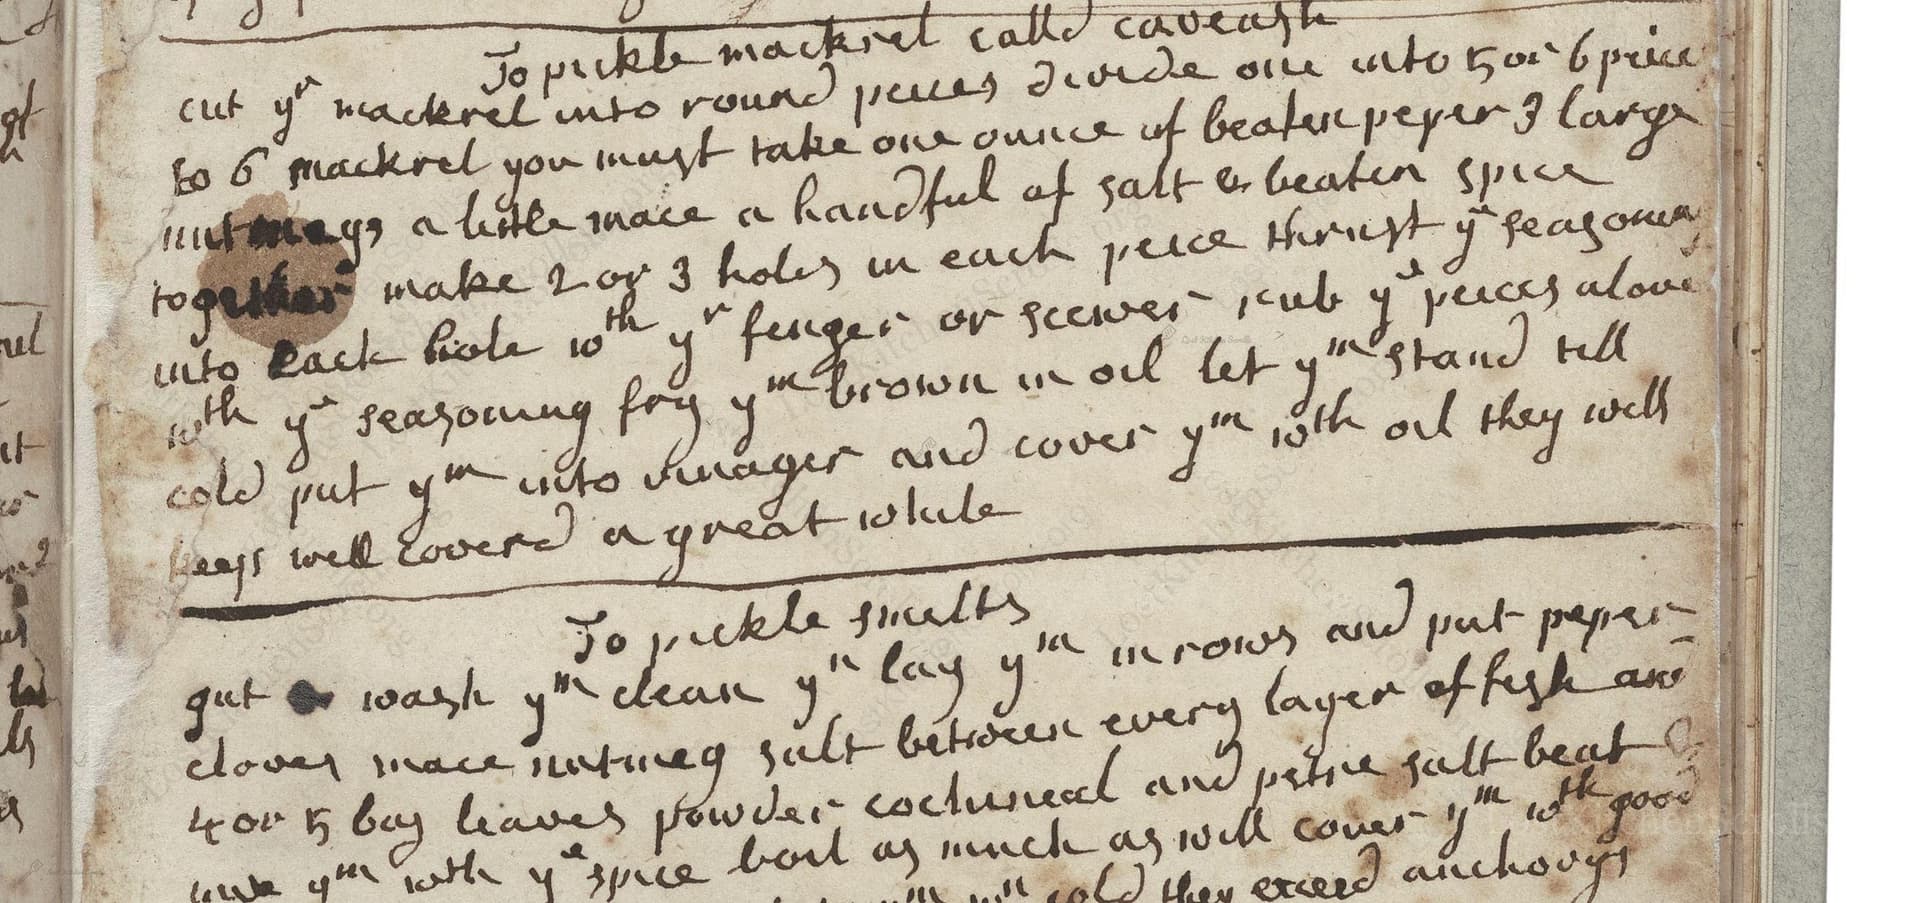 To pickle mackrel calld caveash
cut yr mackrel into round peices divide one into 5 or 6 peice
to 6 mackrel you must take one ounce of beaten peper 3 large
nutmegs a little mace a handful of salt & beaten spice
together make 2 or 3 holes in each peice thrust ye seasoning
into each hole wth yr fenger or scewer rub ye peices alove
wth ye seasoning fry ym brown in oil let ym stand till
cold put ym into vinager and cover ym wth oil they well
keeps well coverd a great while
To pickle smelts
gut wash ym clean yn lay ym in rows and put peper
cloves mace nutmeg salt between every layer of fish and
4 or 5 bay leaves powder cochineal and petre salt beat
mix ym with ye spice boil as much as will cover ym wth good
ym yn cold they exceed anchovys